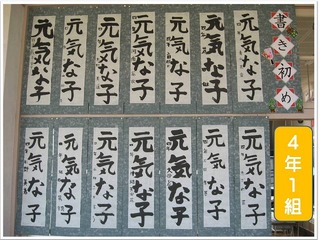 書き初め
元気な子
元気な子
元気な子
元気な子
元気な子
元気な子
元気な子
元気な子
元気な子
元気な子
元気な子
元気な子
元気な子
元気な子
4年1組